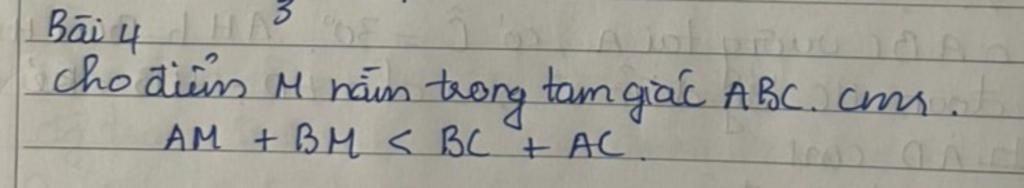 Bài 4
cho điểm M nằm trong tam giác ABC. cmr.
AM + BM < BC + AC.